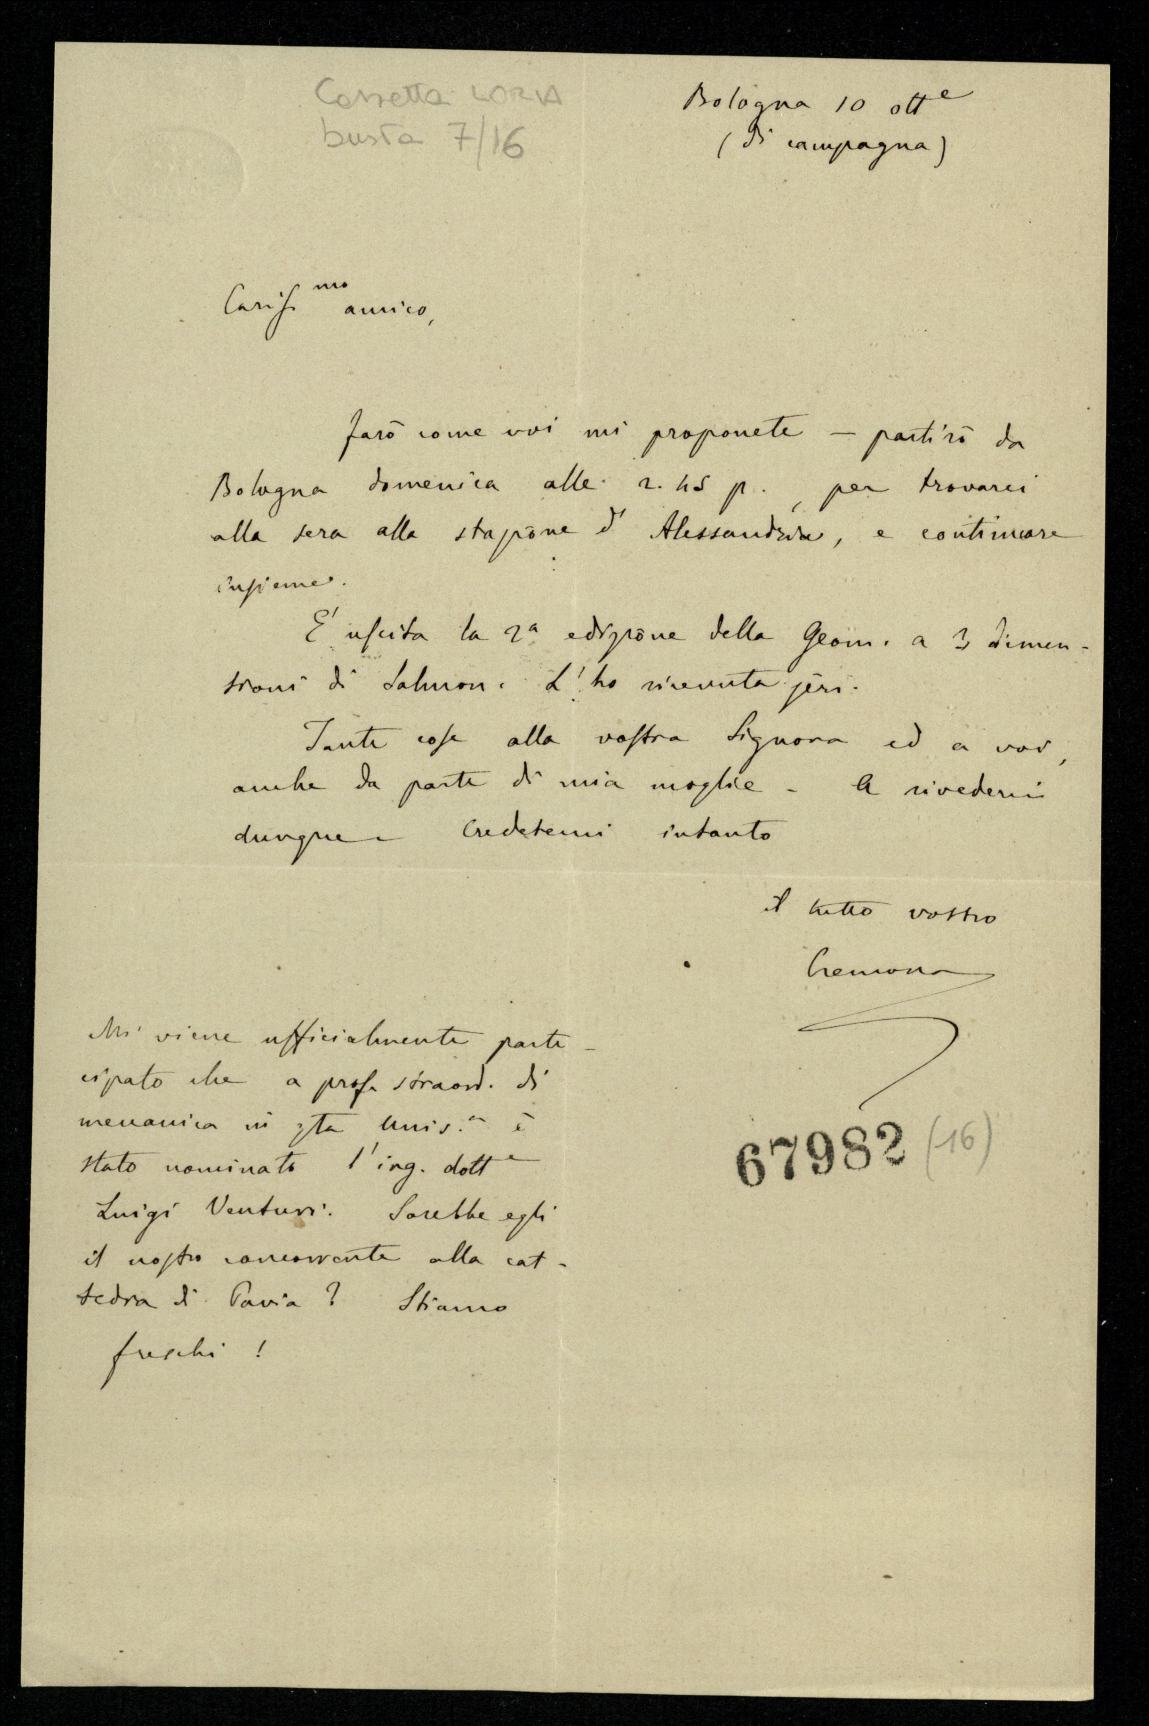 Cassetta LORIA
busta 7/16
Bologna 10 ott.e
(di campagna)
Cariss.mo amico,
Farò come voi mi proponete — partirò da
Bologna domenica alle 2.45 p., per trovarci
alla sera alla stazione d'Alessandria, e continuare
insieme.
E' uscita la 2a edizione della Geom. a 3 dimen-
sioni di Salmon. L'ho ricevuta jeri.
Tante cose alla vostra Signora ed a voi,
anche da parte di mia moglie - A rivederci
dunque - Credetemi intanto
il tutto vostro
Cremona
Mi viene ufficialmente parte-
cipato che a prof. straord. di
meccanica in qta Univ.a è
stato nominato l'ing. dott.e
Luigi Venturi. Sarebbe egli
il nostro concorrente alla cat-
tedra di Pavia? Stiamo
freschi!
67982 (16)